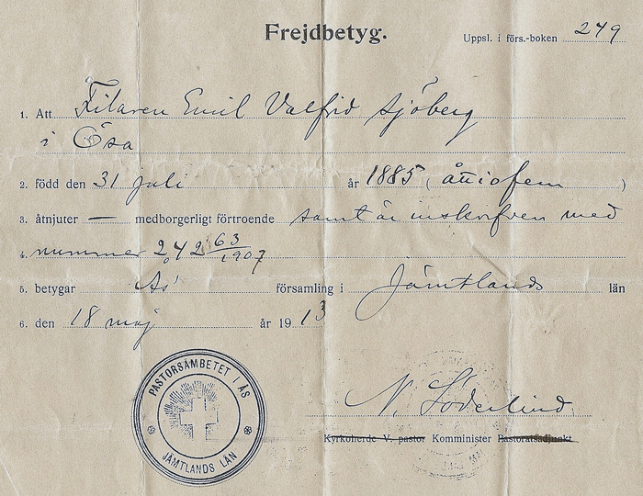 Frejdbetyg.
Uppsl. i förs.-boken 249
1. Att Filaren Emil Valfrid Sjöberg
i Ösa
2. född den 31 juli år 1885 (åttiofem)
3. åtnjuter — medborgerligt förtroende samt är inskrifven med
4. nummer 242 63/1907
5. betygar Ås församling i Jämtlands län
6. den 18 maj år 1913
N. Söderlind
Kyrkoherde V. pastor Komminister Pastoratsadjunkt
PASTORSÄMBETET I ÅS
JÄMTLANDS LÄN